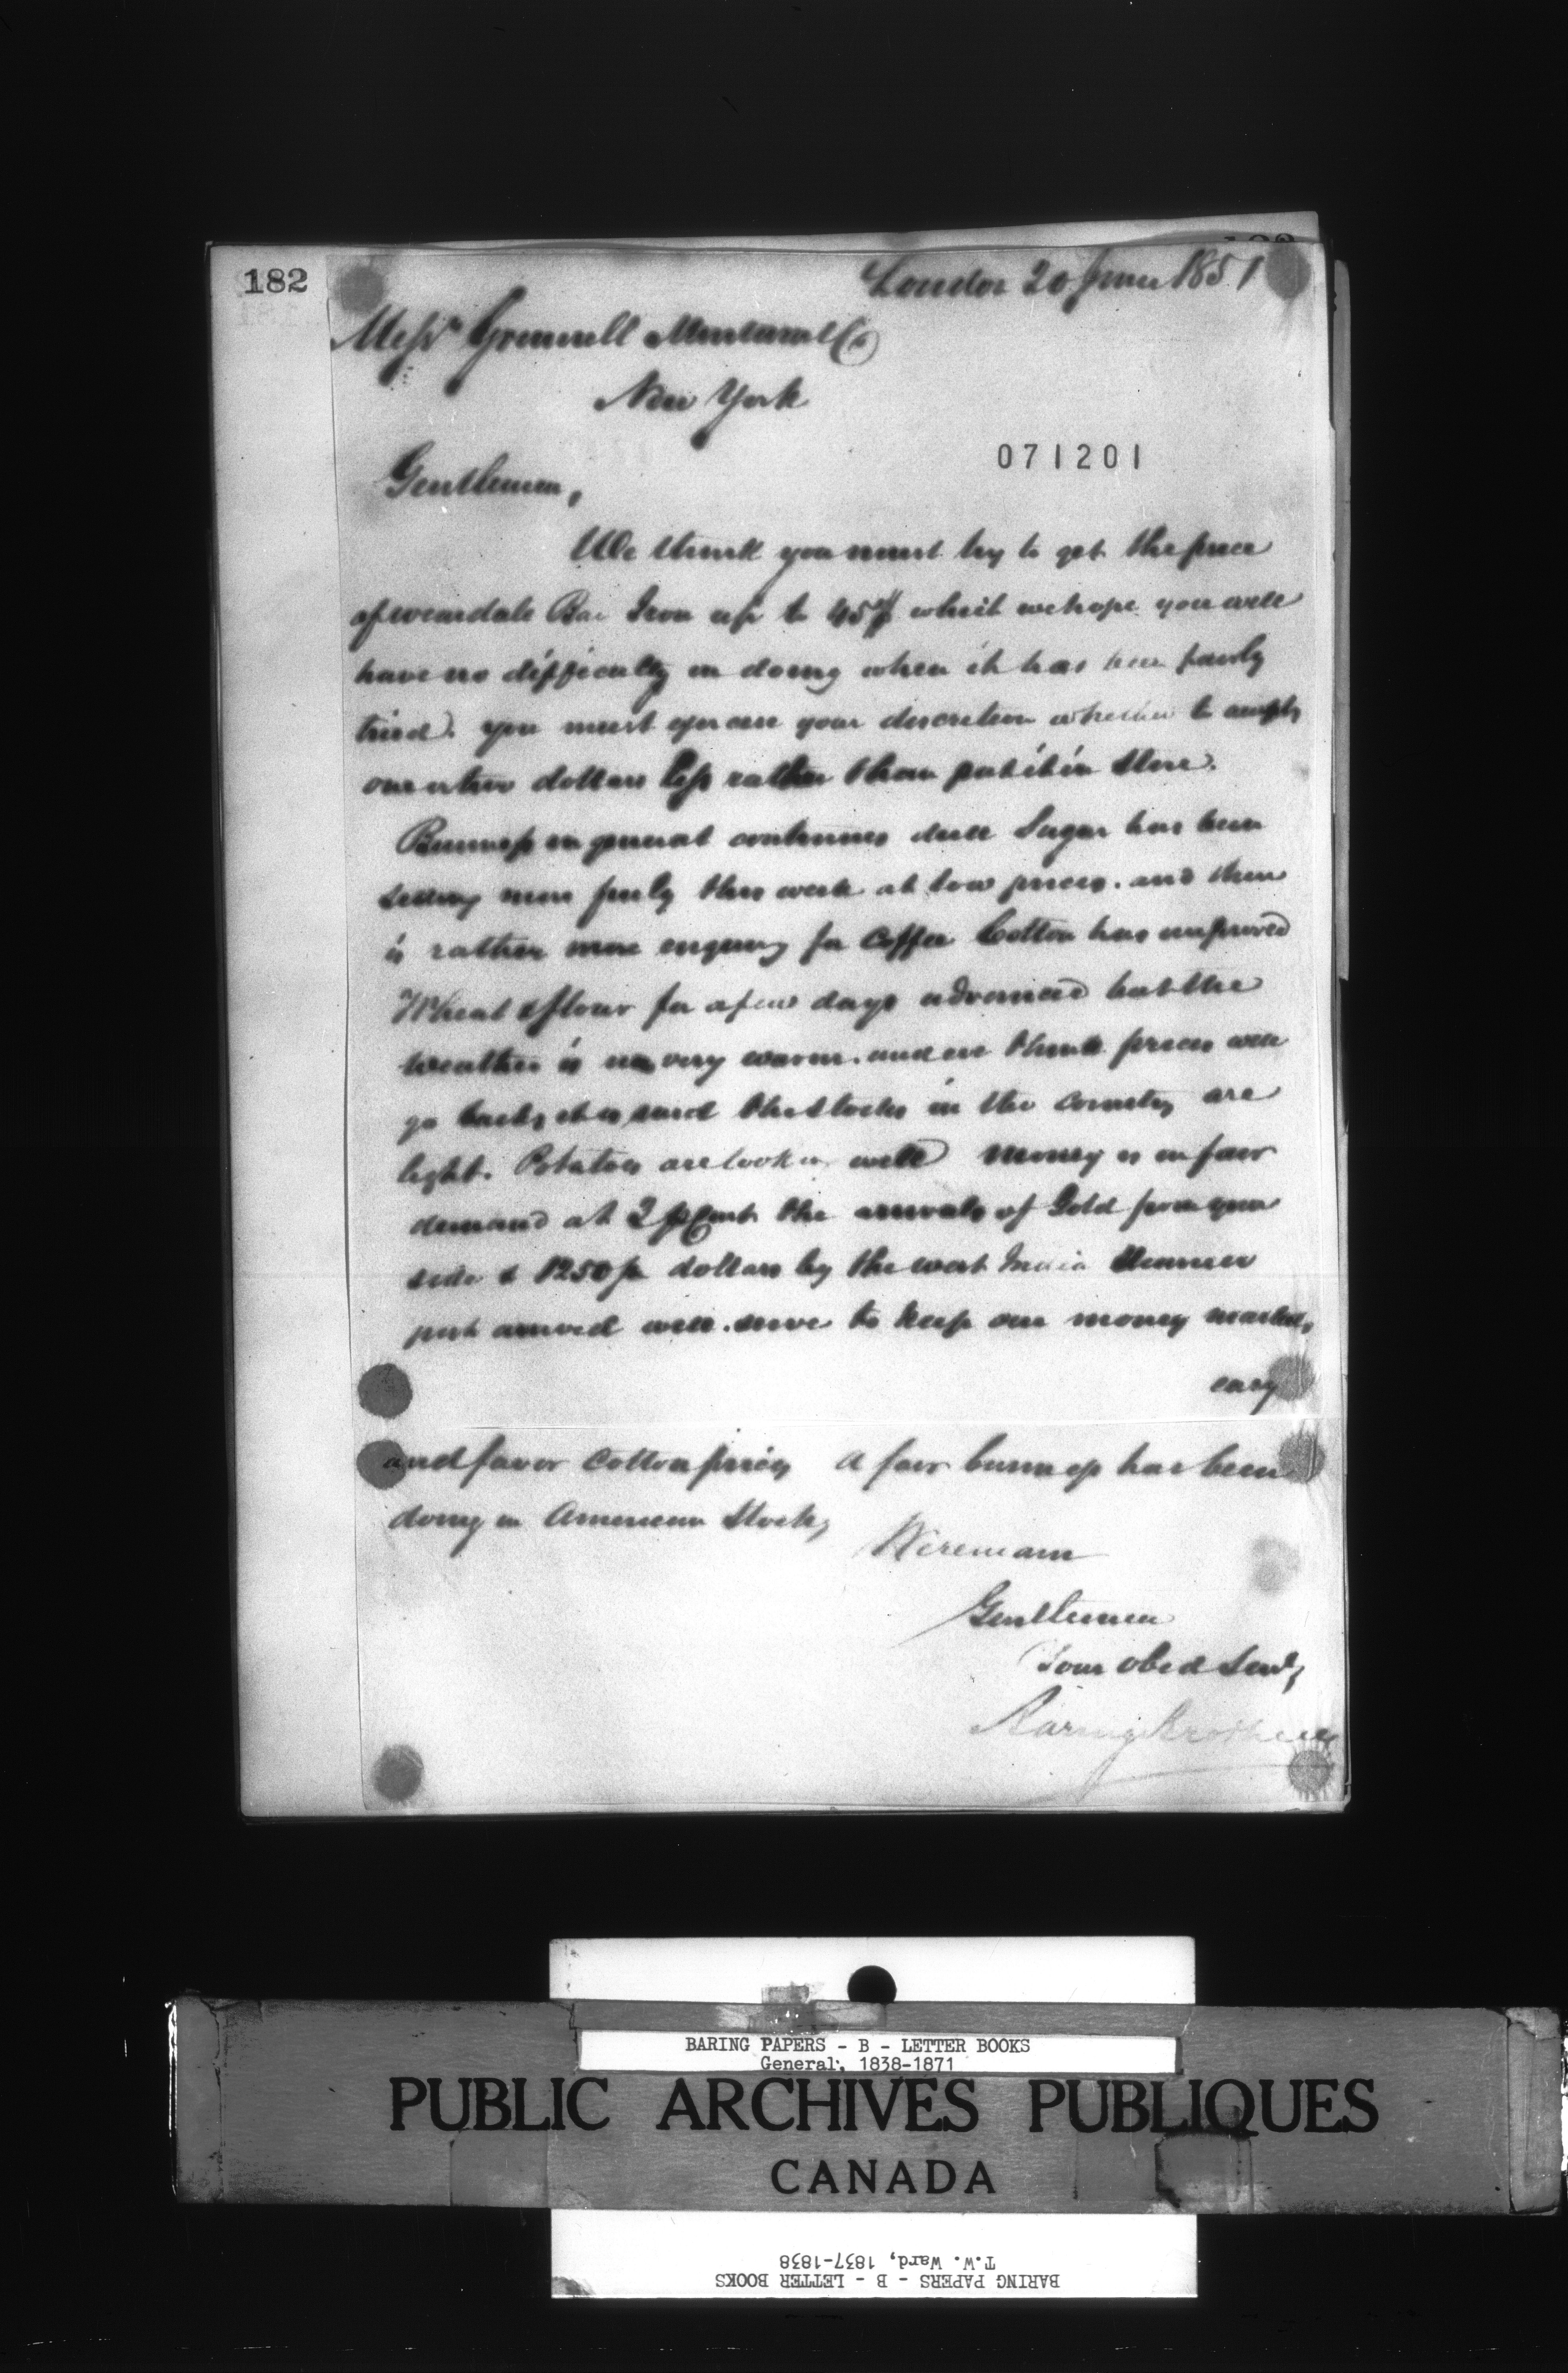 182
London 20 June 1851
Messrs Grinnell Minturn & Co
New York
071201
Gentlemen,
We think you must try to get the price
of weardale Bar Iron up to 45$ which we hope you will
have no difficulty in doing when it has been fairly
tried. you must exercise your discretion whether to accept
one or two dollars less rather than put it in store.
Business in general continues dull Sugar has been
selling more freely this week at low prices. and there
is rather more enquiry for Coffee Cotton has improved
Wheat & flour for a few days advanced but the
weather is very warm. and we think prices will
go back, it is said the stocks in the country are
light. Potatoes are looking well Money is in fair
demand at 3 p Cent the arrivals of Gold from your
side & 1250 dollars by the west India Steamer
just arrived will serve to keep our money market,
easy
and favor Cotton prices A fair business has been
doing in American Stocks,
We remain
Gentlemen
Your obed Servts
Baring Brothers
BARING PAPERS - B - LETTER BOOKS
General, 1838-1871
PUBLIC ARCHIVES PUBLIQUES
CANADA
T.W. Ward, 1837-1838
BARING PAPERS - B - LETTER BOOKS